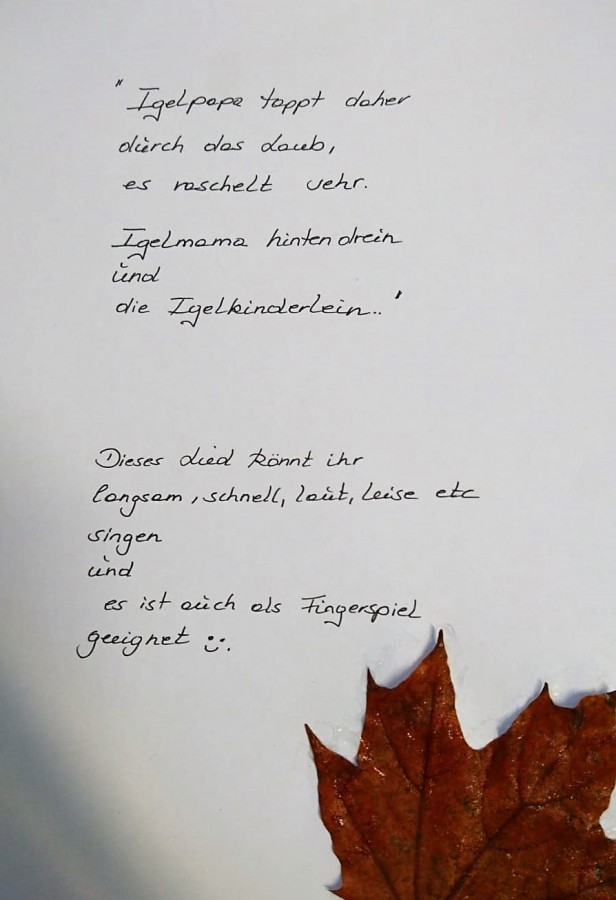 "Igelpapa tappt daher
durch das Laub,
es raschelt sehr.
Igelmama hinten drein
und
die Igelkinderlein.."
Dieses Lied könnt ihr
langsam, schnell, laut, leise etc
singen
und
es ist auch als Fingerspiel
geeignet :).